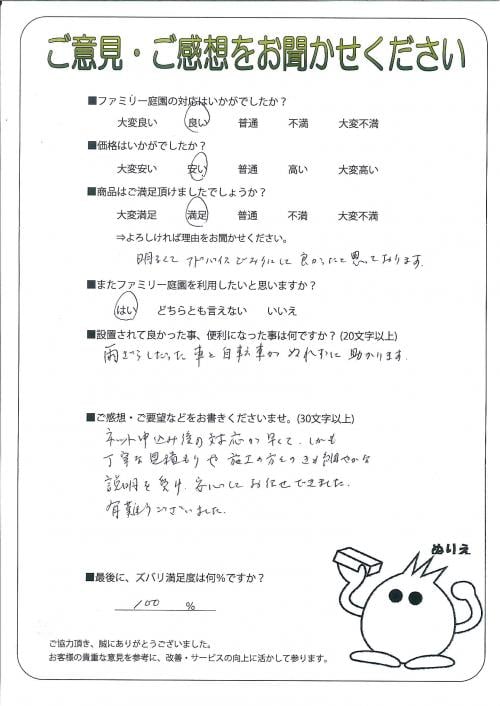 ご意見・ご感想をお聞かせください
■ファミリー庭園の対応はいかがでしたか？
大変良い 良い 普通 不満 大変不満
■価格はいかがでしたか？
大変安い 安い 普通 高い 大変高い
■商品はご満足頂けましたでしょうか？
大変満足 満足 普通 不満 大変不満
⇒よろしければ理由をお聞かせください。
明るくて アドバイスどおりにして良かったと思っております。
■またファミリー庭園を利用したいと思いますか？
はい どちらとも言えない いいえ
■設置されて良かった事、便利になった事は何ですか？(20文字以上)
雨ざらしだった車と自転車がぬれずに助かります。
■ご感想・ご要望などをお書きくださいませ。(30文字以上)
ネット申込み後の対応が早くて、しかも
丁寧な見積もりや施工の方の きめ細やかな
説明を受け、安心してお任せできました。
有難うございました。
ぬりえ
■最後に、ズバリ満足度は何％ですか？
100 %
ご協力頂き、誠にありがとうございました。
お客様の貴重な意見を参考に、改善・サービスの向上に活かして参ります。